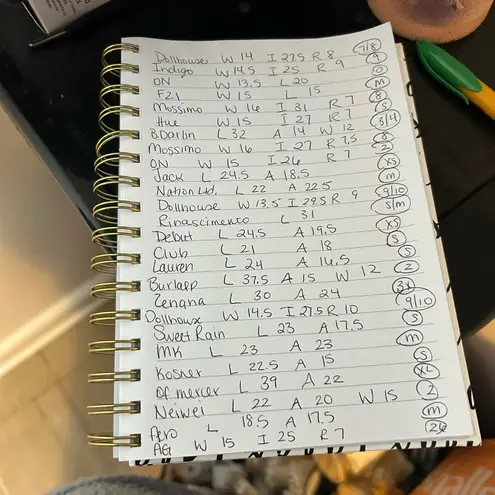 Dollhouse W 14 I 27.5 R 8 7/8
Indigo W 14.5 I 25 R 9 9
ON W 13.5 L 20 0
F21 W 15 L 15 M
Mossimo W 16 I 31 R 7 8
Hue W 15 I 27 R 7 S
BDarlin L 32 A 14 W 12 3/4
Mossimo W 16 I 27 R 7.5 8
ON W 15 I 26 R 7 2
Jack L 24.5 A 18.5 XS
Nation Ltd. L 22 A 22.5 M
Dollhouse W 13.5 I 29.5 R 9 9/10
Rinascimento L 31 S/M
Debut L 24.5 A 19.5 XS
Club L 21 A 18 S
Lauren L 24 A 16.5 S
Burlapp L 37.5 A 15 W 12 2
Zenana L 30 A 24 3X
Dollhouse W 14.5 I 27.5 R 10 9/10
Sweet Rain L 23 A 17.5 S
MK L 23 A 23 M
Kosher L 22.5 A 15 S
Of mercer L 39 A 22 XL
Neiwei L 22 A 20 W 15 2
Aero L 18.5 A 17.5 M
AG W 15 I 25 R 7 26